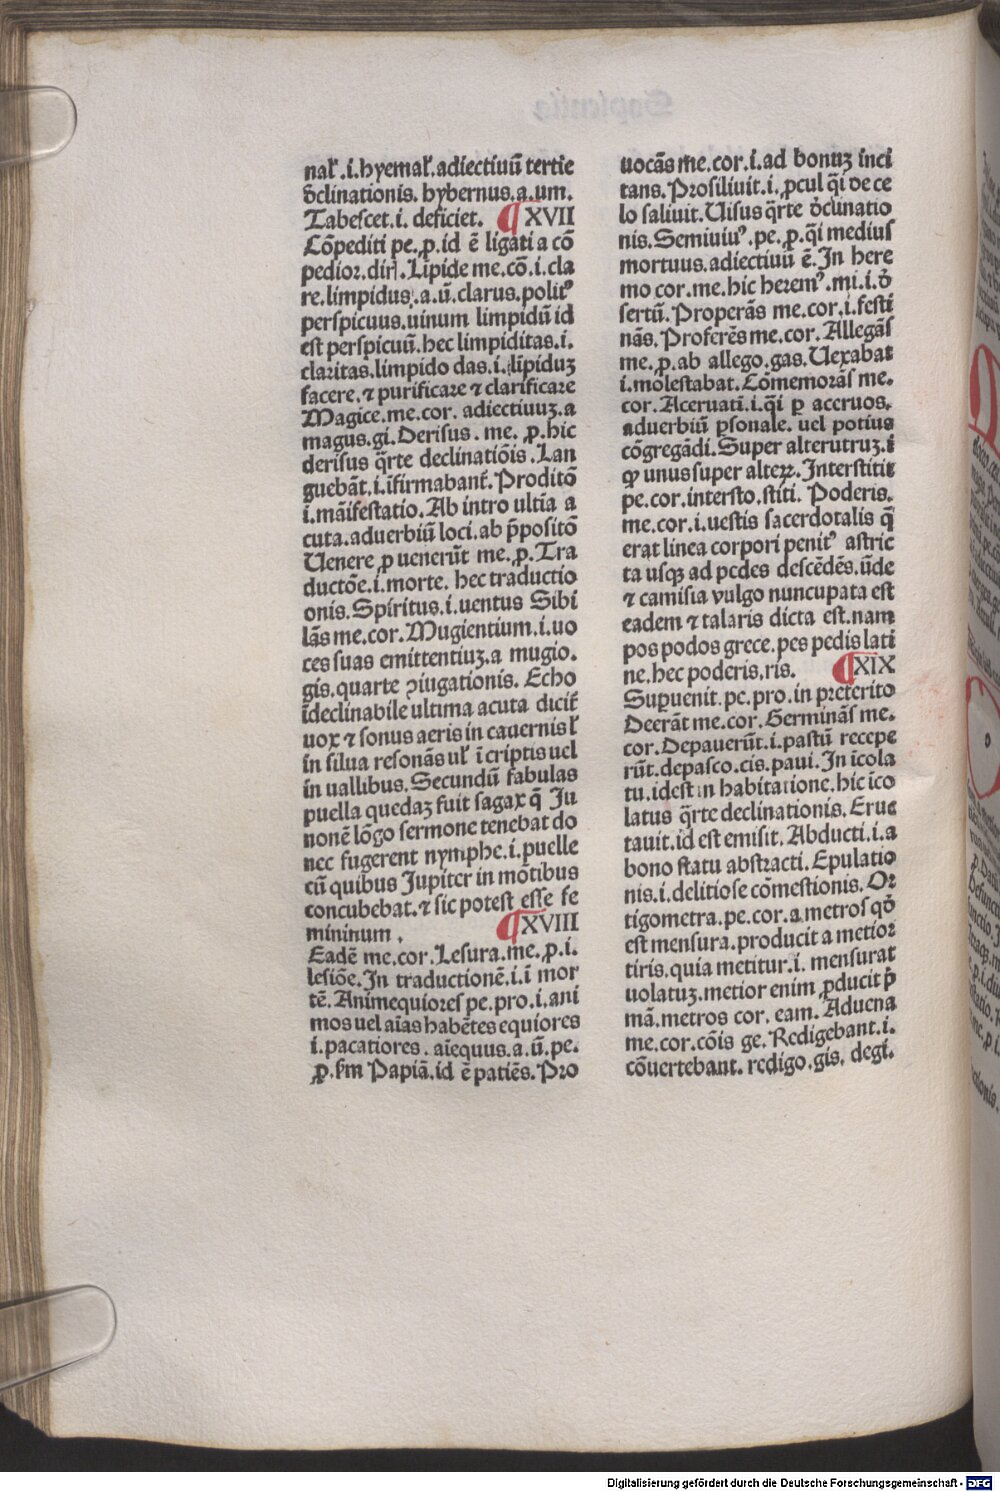 nal̕.i.hyemal̕.adiectiuū tertie
d̄clinationis. hybernus.a.um.
Tabescet.i. deficiet. ¶XVII
Cōpediti pe.ꝓ.id ē ligati a cō
pedior.diri.Lipide me.cō.i.cla
re.limpidus.a.ū.clarus.polit⁹
perspicuus.uinum limpidū id
est perspicuū.hec limpiditas.i.
claritas.limpido das.i.līpiduꝫ
facere.⁊ purificare ⁊ clarificare
Magice.me.cor. adiectiuuꝫ.a
magus.gi.Derisus. me. ꝓ.hic
derisus q̄rte declinatiōis.Lan
guebāt.i.īfirmabant̄.Proditō
i.māifestatio.Ab intro ultīa a
cuta.aduerbiū loci.ab p̄positō
Uenere ꝑ uenerūt me.ꝓ.Tra
ductōe.i.morte. hec traductio
onis.Spiritus.i.uentus Sibi
lās me.cor.Mugientium.i.uo
ces suas emittentiuꝫ.a mugio.
gis.quarte ꝯiugationis. Echo
īdeclinabile ultima acuta dicit̄
uox ⁊ sonus aeris in cauernis l̕
in silua resonās ul̕ ī criptis uel
in uallibus.Secundū fabulas
puella quedaꝫ fuit sagax q̄ Ju
nonē lōgo sermone tenebat do
nec fugerent nymphe.i.puelle
cū quibus Jupiter in mōtibus
concubebat.⁊ sic potest esse fe
mininum. ¶XVIII
Eadē me.cor.Lesura.me.ꝓ.i.
lesiōe.In traductionē.i.ī mor
tē.Animequiores pe.pro.i.ani
mos uel aīas habētes equiores
i.pacatiores.aīequus.a.ū.pe.
ꝓ.km Papiā.id ē patiēs.Pro
uocās me.cor.i.ad bonuꝫ inci
tans.Prosiliuit.i.ꝓcul q̄i de ce
lo saliuit.Uisus q̄rte d̄clinatio
nis.Semiuiu⁹.pe.ꝓ.q̄i medius
mortuus.adiectiuū ē.In here
mo cor.me.hic herem⁹.mi.i.d̄
sertū.Properās me.cor.i.festi
nās.Proferēs me.cor.Allegās
me.ꝓ.ab allego.gas.Uexabat
i.molestabat.Cōmemorās me.
cor.Aceruatī.i.q̄i ꝑ aceruos.
aduerbiū ꝑsonale. uel potius
cōgregādi.Super alterutruꝫ.i
ꝙ unus super alteꝝ.Interstitit
pe.cor.intersto.stiti. Poderis.
me.cor.i.uestis sacerdotalis q̄
erat linea corpori penit⁹ astric
ta usqꝫ ad pedes descēdēs.ūde
⁊ camisia vulgo nuncupata est
eadem ⁊ talaris dicta est.nam
pos podos grece.pes pedis lati
ne.hec poderis.ris. ¶XIX
Suꝑuenit.pe.pro.in preterito
Deerāt me.cor.Germinās me.
cor.Depauerūt.i.pastū recepe
rūt.depasco.cis.paui.In īcola
tu.idest in habitatione.hic īco
latus q̄rte declinationis.Eruc
tauit.id est emisit.Abducti.i.a
bono statu abstracti.Epulatio
nis.i.delitiose cōmestionis.Or
tigometra.pe.cor.a metros qd̄
est mensura.producit a metior
tiris.quia metitur.i. mensurat
uolatuꝫ.metior enim ꝓducit p̄
mā.metros cor. eam.Aduena
me.cor.cōis ge.Redigebant.i.
cōuertebant.redigo.gis.degi.
Digitalisierung gefördert durch die Deutsche Forschungsgemeinschaft - DFG